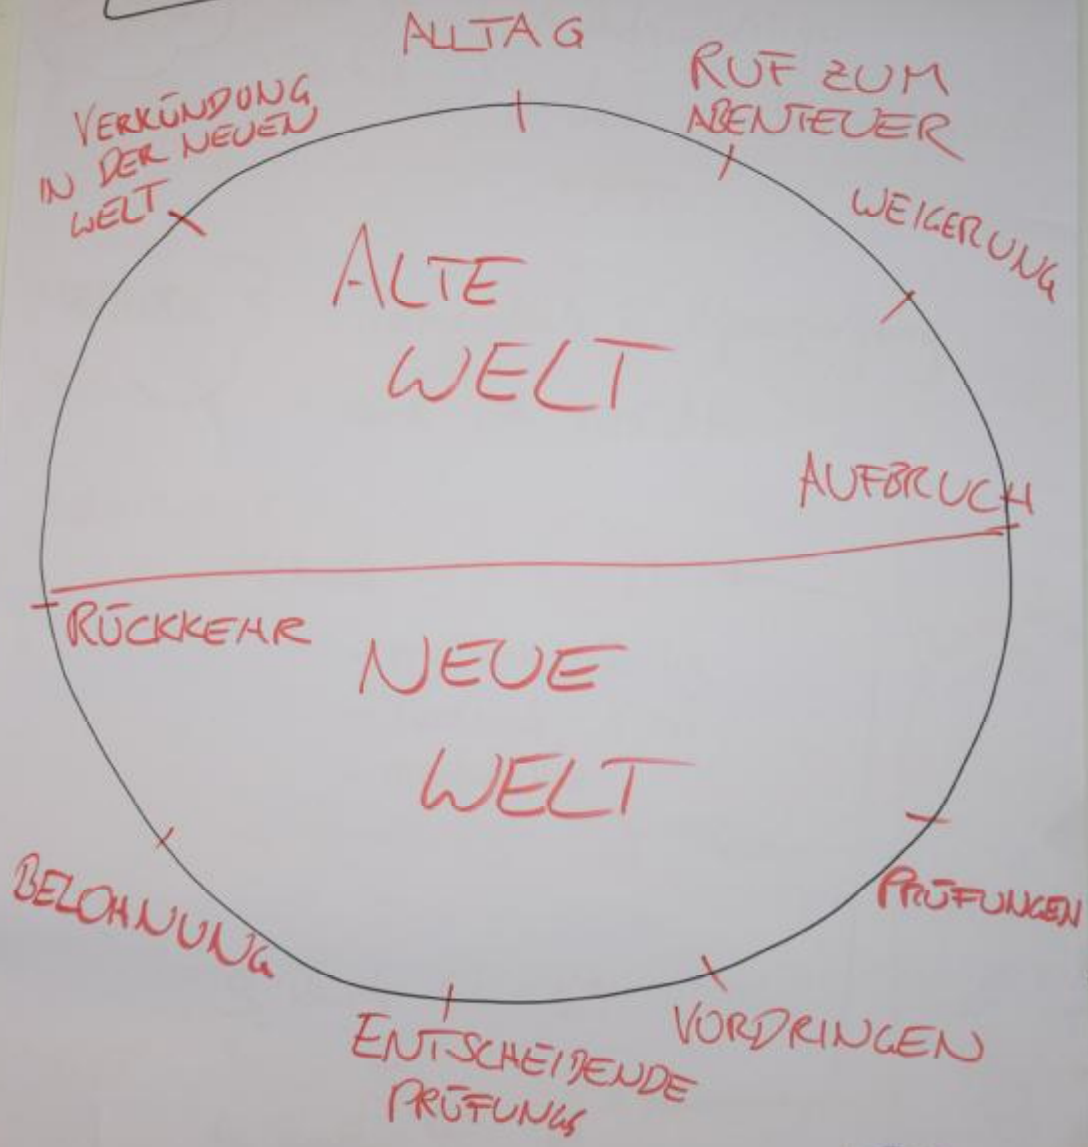 ALLTAG
RUF ZUM
ABENTEUER
WEIGERUNG
AUFBRUCH
PRÜFUNGEN
VORDRINGEN
ENTSCHEIDENDE
PRÜFUNG
BELOHNUNG
RÜCKKEHR
VERKÜNDUNG
IN DER NEUEN
WELT
ALTE
WELT
NEUE
WELT